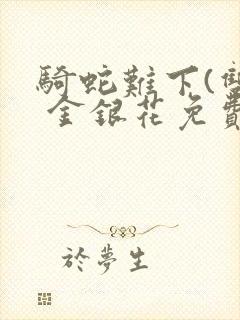 騎蛇難下(雙
金銀花免費
於夢生